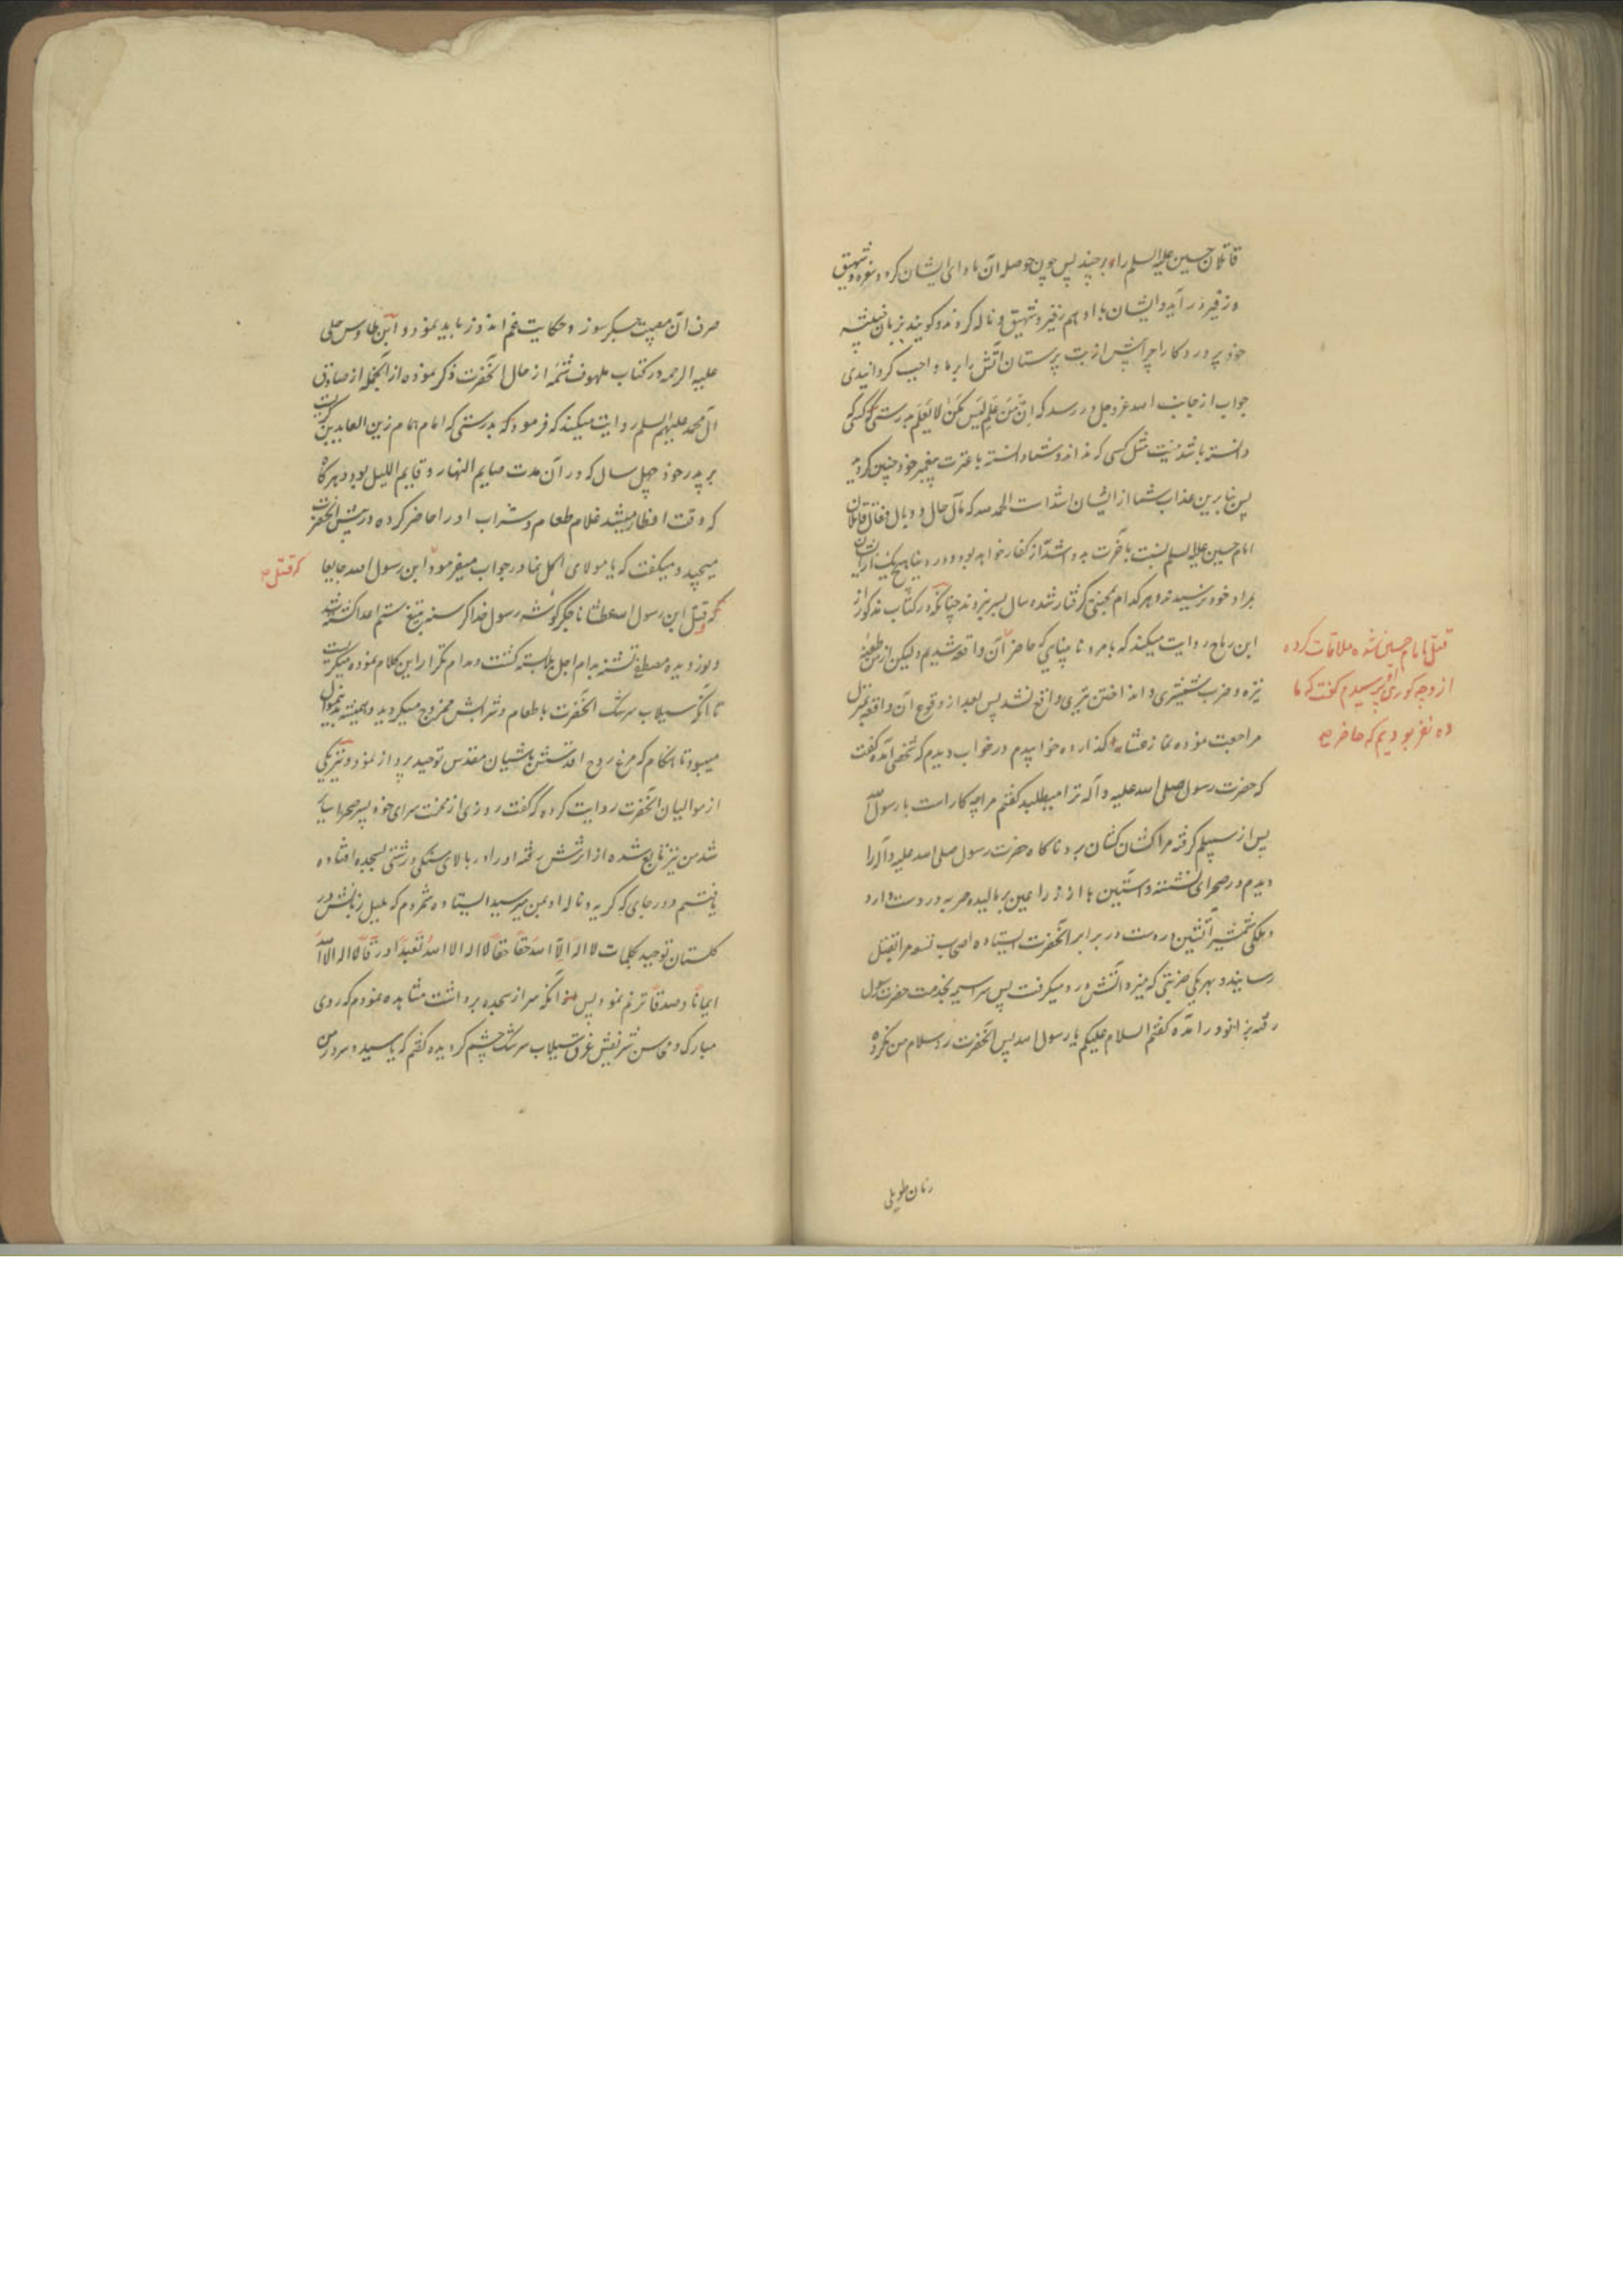 قاتلان حسین علیه السلم را بر چیند پس چون حوصله آن ماوای ایشان کردد نعره و شهیق
و زفیر در آید و ایشان با او هم زفیر و شهیق و ناله کردند و کویند بزبان
خود پروردکارا چرا پیش از بت پرستان آتش را بر ما واجب کردانیدی
جواب از جانب الله عز و جل در رسد که اِنَّ مَنْ عَلِمَ لَیْسَ کَمَنْ لا یَعْلَم بدرستی که کسی که
دانسته باشد نیست مثل کسی که نداند و شما دانسته با عترت پیغمبر خود چنین کردید
پس بنابرین عذاب شما از ایشان اشد است الحمد لله که مآل حال و وبال قاتلان
امام حسین علیه السلم نسبت بآخرت بد و اشد از کفار خواهد بود و در دنیا هیچ یک از ایشان
بمراد خود نرسیدند و هر کدام بمحنتی کرفتار شده سال بسر نبردند چنانکه در کتاب مذکور از
ابن رماح روایت میکنند که بامرد نابینایی که حاضر آن واقعه شدیم ولیکن از من طعن
نیزه و ضرب شمشیری و انداختن تیری واقع نشد پس بعد از وقوع آن واقعه بمنزل
مراجعت نموده نماز عشا را کذارده خوابیدم در خواب دیدم که شخصی آمده کفت
که حضرت رسول صلی الله علیه و آله ترا میطلبد کفتم مرا چه کار است با رسول الله
پس از سبیلم کرفته مرا کشان کشان برد ناکاه حضرت رسول صلی الله علیه و آله را
دیدم در صحرای نشسته و آستین با از ذراعین بر مالیده حربه در دست دارد
و ملکی شمشیر آتشین در دست در برابر آنحضرت ایستاده اصحاب تسعه مرا بقتل
رسانید و بهر یکی ضربتی که میزد آتش درو میکرفت پس سراسیمه بخدمت حضرت رسول
رفته بزانو در آمده کفتم السلام علیکم یا رسول الله پس آنحضرت رد سلام من نکرده
قتل امام حسین شده ملاقات کرده
از وجه کوری او پرسیدم کفت که ما
ده نفر بودیم که حاضر صح
زمان طویلی
صرف آن مصیبت جکرسوز و حکایت غم اندوز باید نمود و ابن طاوس حلی
علیه الرحمه در کتاب ملهوف شمّه از حال آنحضرت ذکر نموده از آنجمله از صادق
آل محمد علیهم السلم روایت میکنند که فرمود که بدرستی که امام همام زین العابدین کریست
بر پدر خود چهل سال که در آن مدت صایم النهار و قایم اللیل بود و هرکاه
که وقت افطار میشد غلام طعام و شراب او را حاضر کرده در پیش آنحضرت
میچید و میکفت که یا مولای اکل نما در جواب میفرمود ابن رسول الله جایعا
که قتل صح
و قتل ابن رسول الله عطشانا جکر کوشه رسول خدا کرسنه بتیغ ستم اعدا کشته شد
و نور دیده مصطفی تشنه بدام اجل بسته کشت و مدام تکرار این کلام نموده میکریست
تا آنکه سیلاب سرشک آنحضرت با طعام و شرابش ممزوج میکردید و همیشه بدینمنوال
میبود تا هنکام که مرغ روح اقدسش باشیان مقدس توحید پرواز نمود و نیز یکی
از موالیان آنحضرت روایت کرده که کفت روزی از محنت سرای خود بسر صحرا
شد من نیز تابع شده از اثرش رفته او را در بالای سنکی درشتی بسجده افتاده
یافتم و در جای که کریه و ناله او بمن میرسید ایستاده شمردم که بلبل زبانش در
کلستان توحید بکلمات لا اله الا الله حقاً حقاً لا اله الا الله تعبداً و رقاً لا اله الا الله
ایماناً و صدقاً ترنم نمود پس آنکه سر از سجده برداشت مشاهده نمودم که روی
مبارک و محاسن شریفش غرق سیلاب سرشک چشم کردیده کفتم که یا سید و سرور من